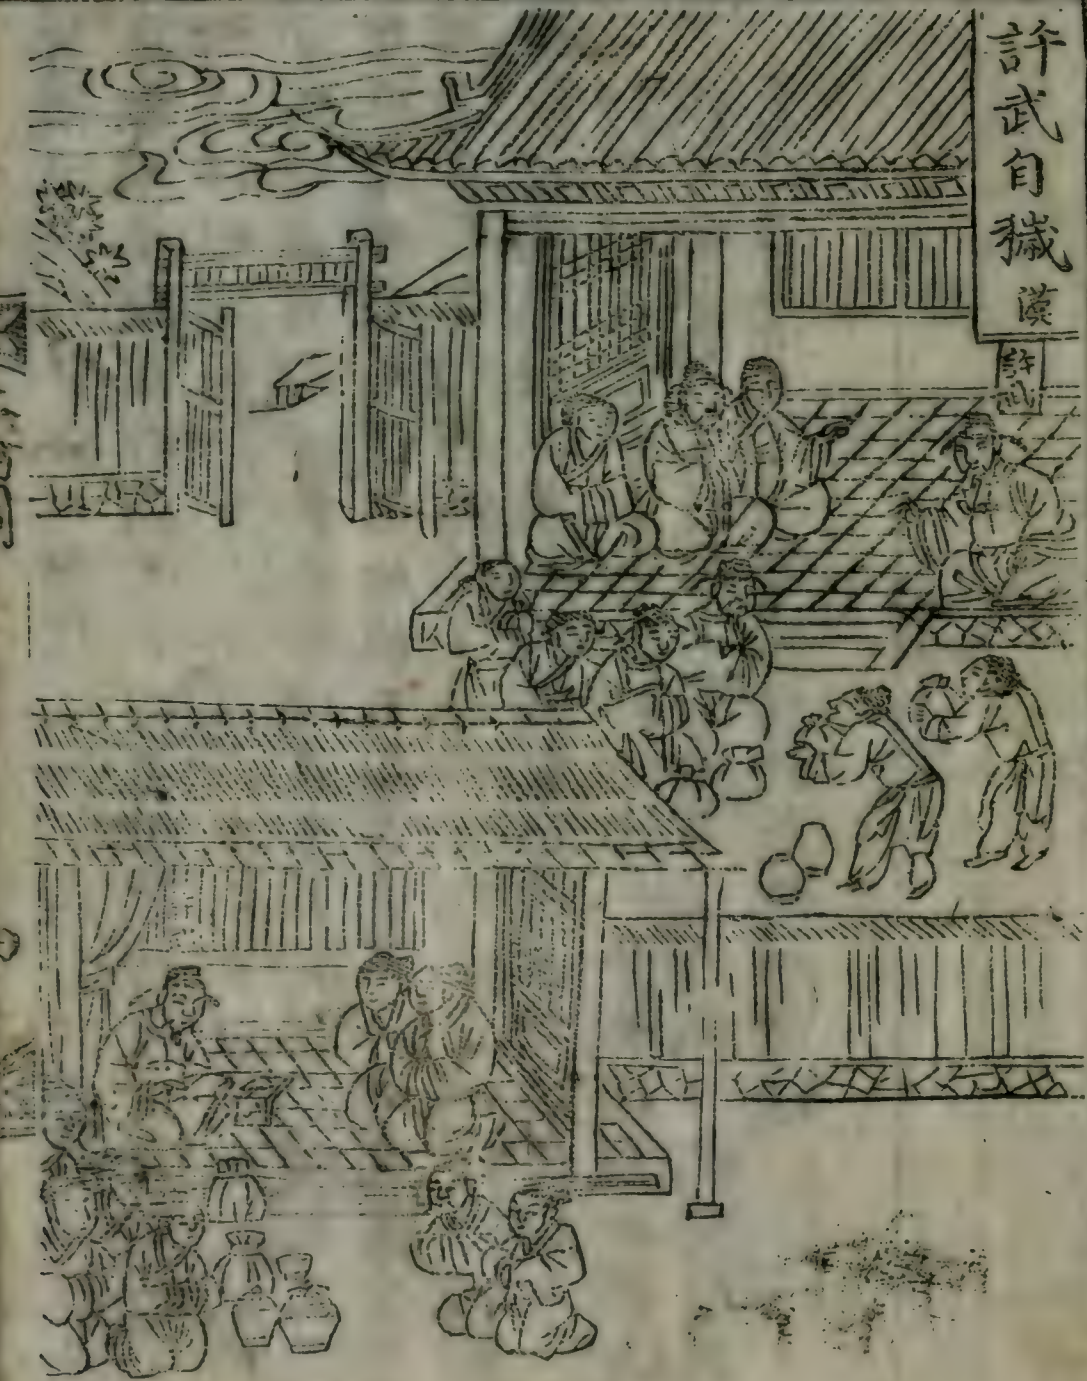 許武自穢 漢
許武